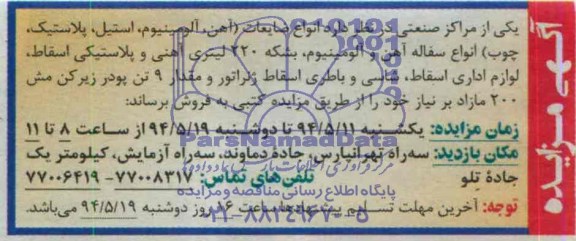 آگهی مزایده
یکی از مراکز صنعتی در نظر دارد انواع ضایعات (آهن، آلومینیوم، استیل، پلاستیک،
چوب) انواع سفاله آهن و آلومینیوم، بشکه ۲۲۰ لیتری آهنی و پلاستیکی اسقاط،
لوازم اداری اسقاط، شاسی و باطری اسقاط ژنراتور و مقدار ۹ تن پودر زیرکن مش
۲۰۰ مازاد بر نیاز خود را از طریق مزایده کتبی به فروش برساند:
زمان مزایده: یکشنبه ۹۴/۵/۱۱ تا دوشنبه ۹۴/۵/۱۹ از ساعت ۸ تا ۱۱
مکان بازدید: سه‌راه تهرانپارس، جاده دماوند، سه‌راه آزمایش، کیلومتر یک
جاده تلو تلفن‌های تماس: ۷۷۰۰۸۳۱۷ - ۷۷۰۰۶۴۱۹
توجه: آخرین مهلت تسلیم پیشنهادها ساعت ۱۶ روز دوشنبه ۹۴/۵/۱۹ می‌باشد.
ParsNamadData
پایگاه اطلاع رسانی مناقصه و مزایده
۰۲۱-۸۸۳۴۹۶۷۰-۵